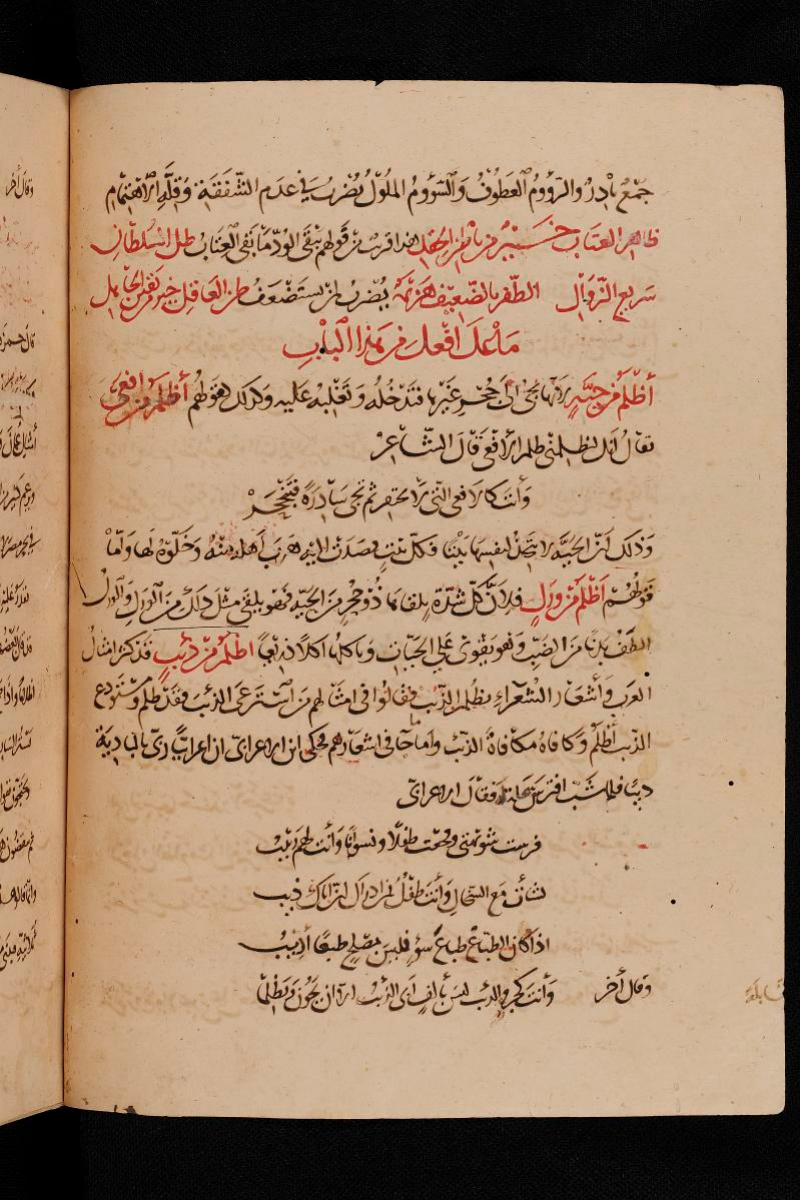 جمع بادر والرؤوم العطوف والسؤوم الملول يضرب في عدم الشفقة وقلة الاهتمام
ظاهر العتاب خير من باطن الحقد هذا قريب من قولهم يبقى الود ما بقي العتاب ظل السلطان
سريع الزوال الظفر بالضعيف هزيمة يضرب لمن يستضعف ظن العاقل خير من يقين الجاهل
ما على افعل من هذا الباب
أظلم من حية لانها تجئ الى جحر غيرها فتدخله وتغلبه عليه وكذلك قولهم أظلم من افعى
تقال انك لتظلمني ظلم الافعى قال الشاعر
وأنت كالافعى التي لا تحتفر ثم تجى سادرة فتنجحر
وذلك أن الحية لا تتخذ لنفسها بيتا فكل بيت قصدت اليه هرب أهله منه وخلوه لها وأما
قولهم أظلم من ورل فلان كل شدة يلقاها ذو جحر من الحية فهو يلقى مثل ذلك من الورل والورل
الطف بدنا من الضب وهو يقوى على الحيات وياكلها اكلا ذريعا اظلم من ذئب قد ذكر امثال
العرب وأشعار الشعراء بظلم الذئب فقالوا في امثالهم من استرعى الذئب فقد ظلم ومستودع
الذئب أظلم وكافاه مكافاة الذئب واما ما جا في اشعارهم فحكى ابن الاعرابى ان اعرابيا ربى بالبادية
ذيبا فلما شب افترس سخلة له فقال الاعرابى
فرست شويهتي وفجعت طفلا ونسوانا وأنت لهم ربيب
نشأت مع السخال وأنت طفل فما ادراك ان اباك ذيب
اذا كان الطباع طباع سوء فليس مصلح طبعا أديب
وقال أخر وأنت كجرو الذئب ليس بألف أبى الذئب الا ان يخون ويظلما